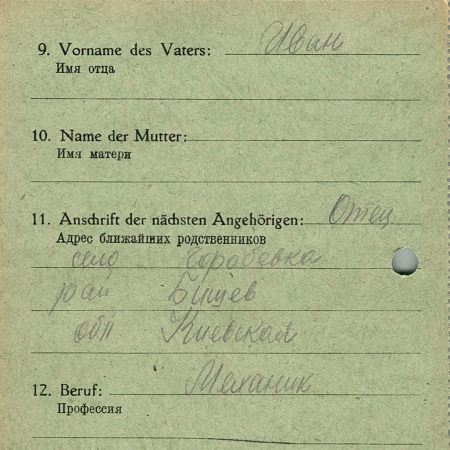 9. Vorname des Vaters: Иван
Имя отца
10. Name der Mutter:
Имя матери
11. Anschrift der nächsten Angehörigen: Отец
Адрес ближайших родственников
село
рай Бишев
обл Киевская
12. Beruf: Механик
Профессия